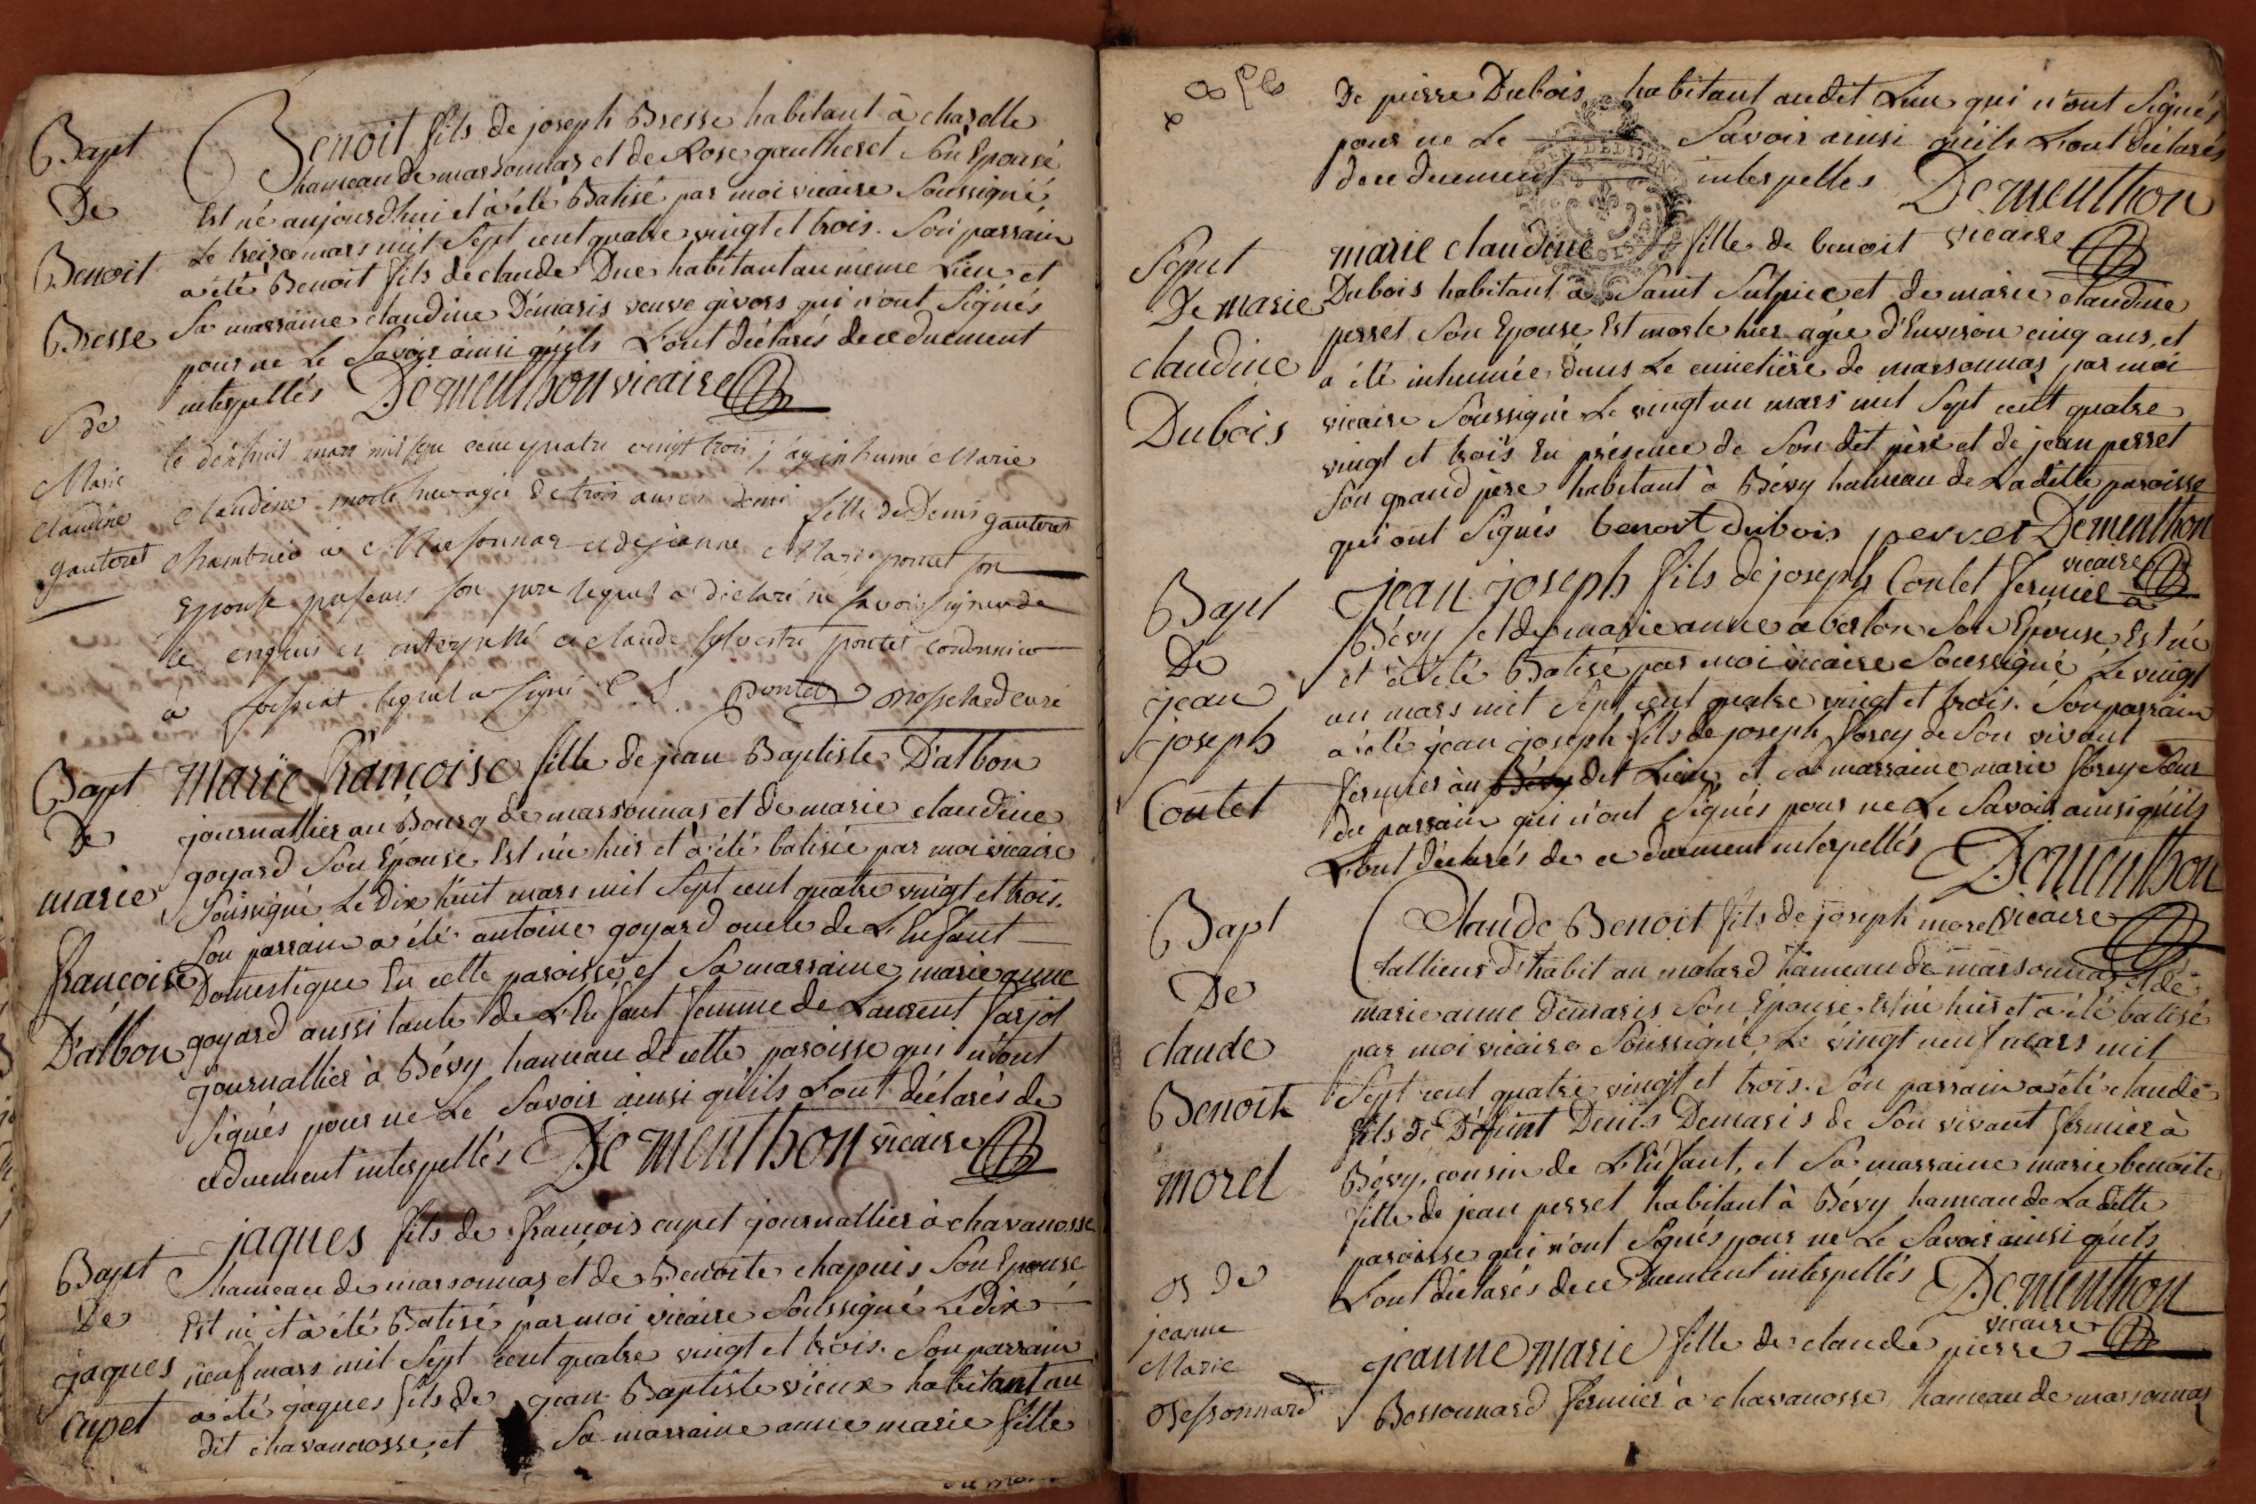 Bapt
De
Benoit
Bresse
Benoit fils de joseph Bresse habitant à chazelle
hameau de marsonnas et de Rose gautheret Son Epouse
Est né aujourd'hui et à été Batisé par moi vicaire Soussigné
Le treize mars mil Sept cent quatre vingt et trois. Son parrain
a été Benoit fils de claude Duc habitant au même Lieu et
Sa marraine claudine Démaris veuve givors qui n'ont Signés
pour ne Le Savoir ainsi qu'ils L'ont déclarés de ce duement
interpellés Dementhon vicaire
S de
Marie
claudine
gauteret
le dixhuit mars mil sept cent quatre vingt trois j'ay inhumé Marie
claudine morte hier agée de trois ans et demi fille de Denis gauteret
à Marsonnas et de jeanne Marie poncet son
Epouse présens son pere lequel a déclaré ne savoir signer de
ce enquis et interpellé et claude sylvestre poncet cordonnier
à lequel a signé C. S. Poncet curé
Bapt
De
marie
françoise
D'albon
marie françoise fille de jean Baptiste D'albon
journallier au Bourg de marsonnas et de marie claudine
goyard Son Epouse Est née hier et à été batisée par moi vicaire
Soussigné Le dix huit mars mil Sept cent quatre vingt et trois.
Son parrain a été antoine goyard oncle de L'Enfant
Domestique En cette paroisse et Sa marraine marie anne
goyard aussi tante de L'Enfant femme de Laurent farjot
journallier à Bévy hameau de cette paroisse qui n'ont
Signés pour ne Le Savoir ainsi qu'ils L'ont déclarés de
ce duement interpellés Dementhon vicaire
Bapt
De
jaques
cupet
jaques fils de françois cupet journallier à chavanosse
hameau de marsonnas et de Benoite chapuis Son Epouse
Est né et à été Batisé par moi vicaire Soussigné Le dix
neuf mars mil Sept cent quatre vingt et trois. Son parrain
a été jaques fils de jean Baptiste vieux habitant au
dit chavanosse, et Sa marraine anne marie fille
De pierre Dubois habitant audit Lieu qui n'ont Signés
pour ne Le Savoir ainsi qu'ils L'ont déclarés
de ce duement interpellés Dementhon
vicaire
Sepult
De marie
claudine
Dubois
marie claudine fille de benoit
Dubois habitant à Saint Sulpice et de marie claudine
perret Son Epouse Est morte hier agée d'Environ cinq ans, et
a été inhumée dans Le cimetière de marsonnas par moi
vicaire Soussigné Le vingt un mars mil Sept cent quatre
vingt et trois En présence de Son dit père et de jean perret
Son grand père habitant à Bévy hameau de Ladite paroisse
qui ont Signés benoit dubois perret Dementhon
vicaire
Bapt
De
jean
joseph
Coulet
jean joseph fils de joseph Coulet fermier à
Bévy et de marie anne aberton Son Epouse Est né
et à été Batisé par moi vicaire Soussigné Le vingt
un mars mil Sept cent quatre vingt et trois. Son parrain
a été jean joseph fils de joseph forey de Son vivant
fermier au Bévy dit Lieu, et Sa marraine marie forey Sœur
du parrain qui n'ont Signés pour ne Le Savoir ainsi qu'ils
L'ont déclarés de ce duement interpellés Dementhon
vicaire
Bapt
De
claude
Benoit
morel
Claude Benoit fils de joseph morel
tallieur d'habit au molard hameau de marsonnas, et de
marie anne démaris Son Epouse, Est né hier et à été batisé
par moi vicaire Soussigné, Le vingt neuf mars mil
Sept cent quatre vingt et trois. Son parrain a été claude
fils de Défunt Denis Demaris de Son vivant fermier à
Bévy, cousin de L'Enfant, et Sa marraine marie benoite
fille de jean perret habitant à Bévy hameau de Ladite
paroisse qui n'ont Signés pour ne Le Savoir ainsi qu'ils
L'ont déclarés de ce Duement interpellés Dementhon
vicaire
B de
jeanne
Marie
Bessonnard
jeanne marie fille de claude pierre
Bessonnard fermier à chavanosse hameau de marsonnas